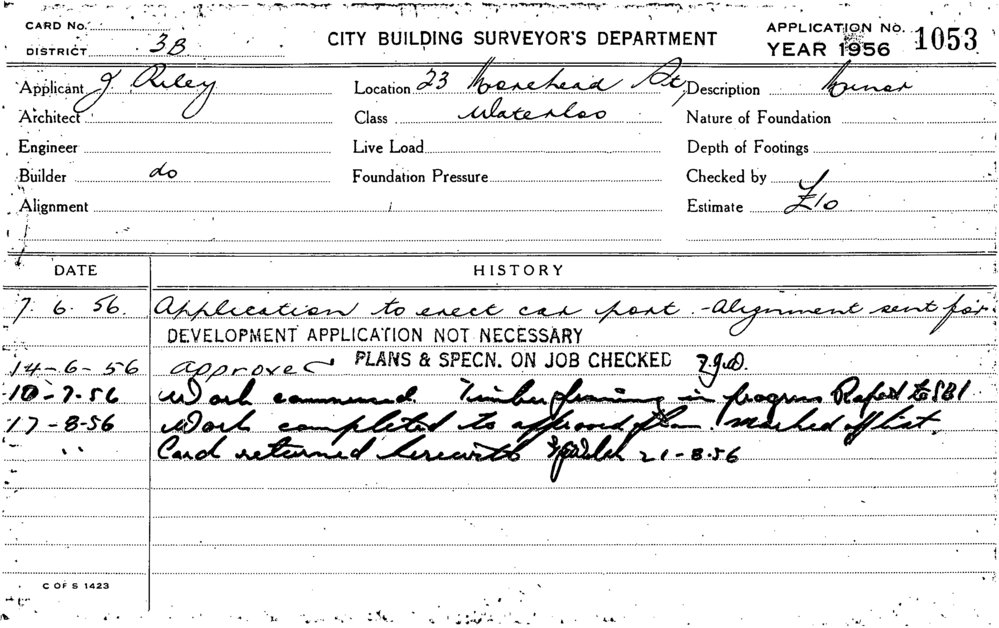 CARD No.
DISTRICT 3B
CITY BUILDING SURVEYOR'S DEPARTMENT
APPLICATION No. 1053
YEAR 1956
Applicant J Riley
Location 23 Morehead St,
Description Minor
Architect
Class Waterloo
Nature of Foundation
Engineer
Live Load
Depth of Footings
Builder do
Foundation Pressure
Checked by
Alignment
Estimate £10
DATE
HISTORY
7. 6. 56. Application to erect car port. - Alignment sent for.
DEVELOPMENT APPLICATION NOT NECESSARY
14-6-56 approved PLANS & SPECN. ON JOB CHECKED
10-7-56 Work commenced. Timber framing in progress Report to SBI
17-8-56 Work completed to approved plan. Marked off list.
" Card returned herewith 21-8-56
C OF S 1423